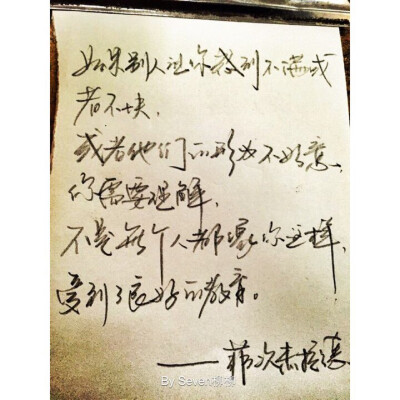 如果别人让你感到不满或
者不快,
或者他们的形为不如意,
你需要理解,
不是每个人都像你这样,
受到了良好的教育。
——菲次杰拉德
By Seven